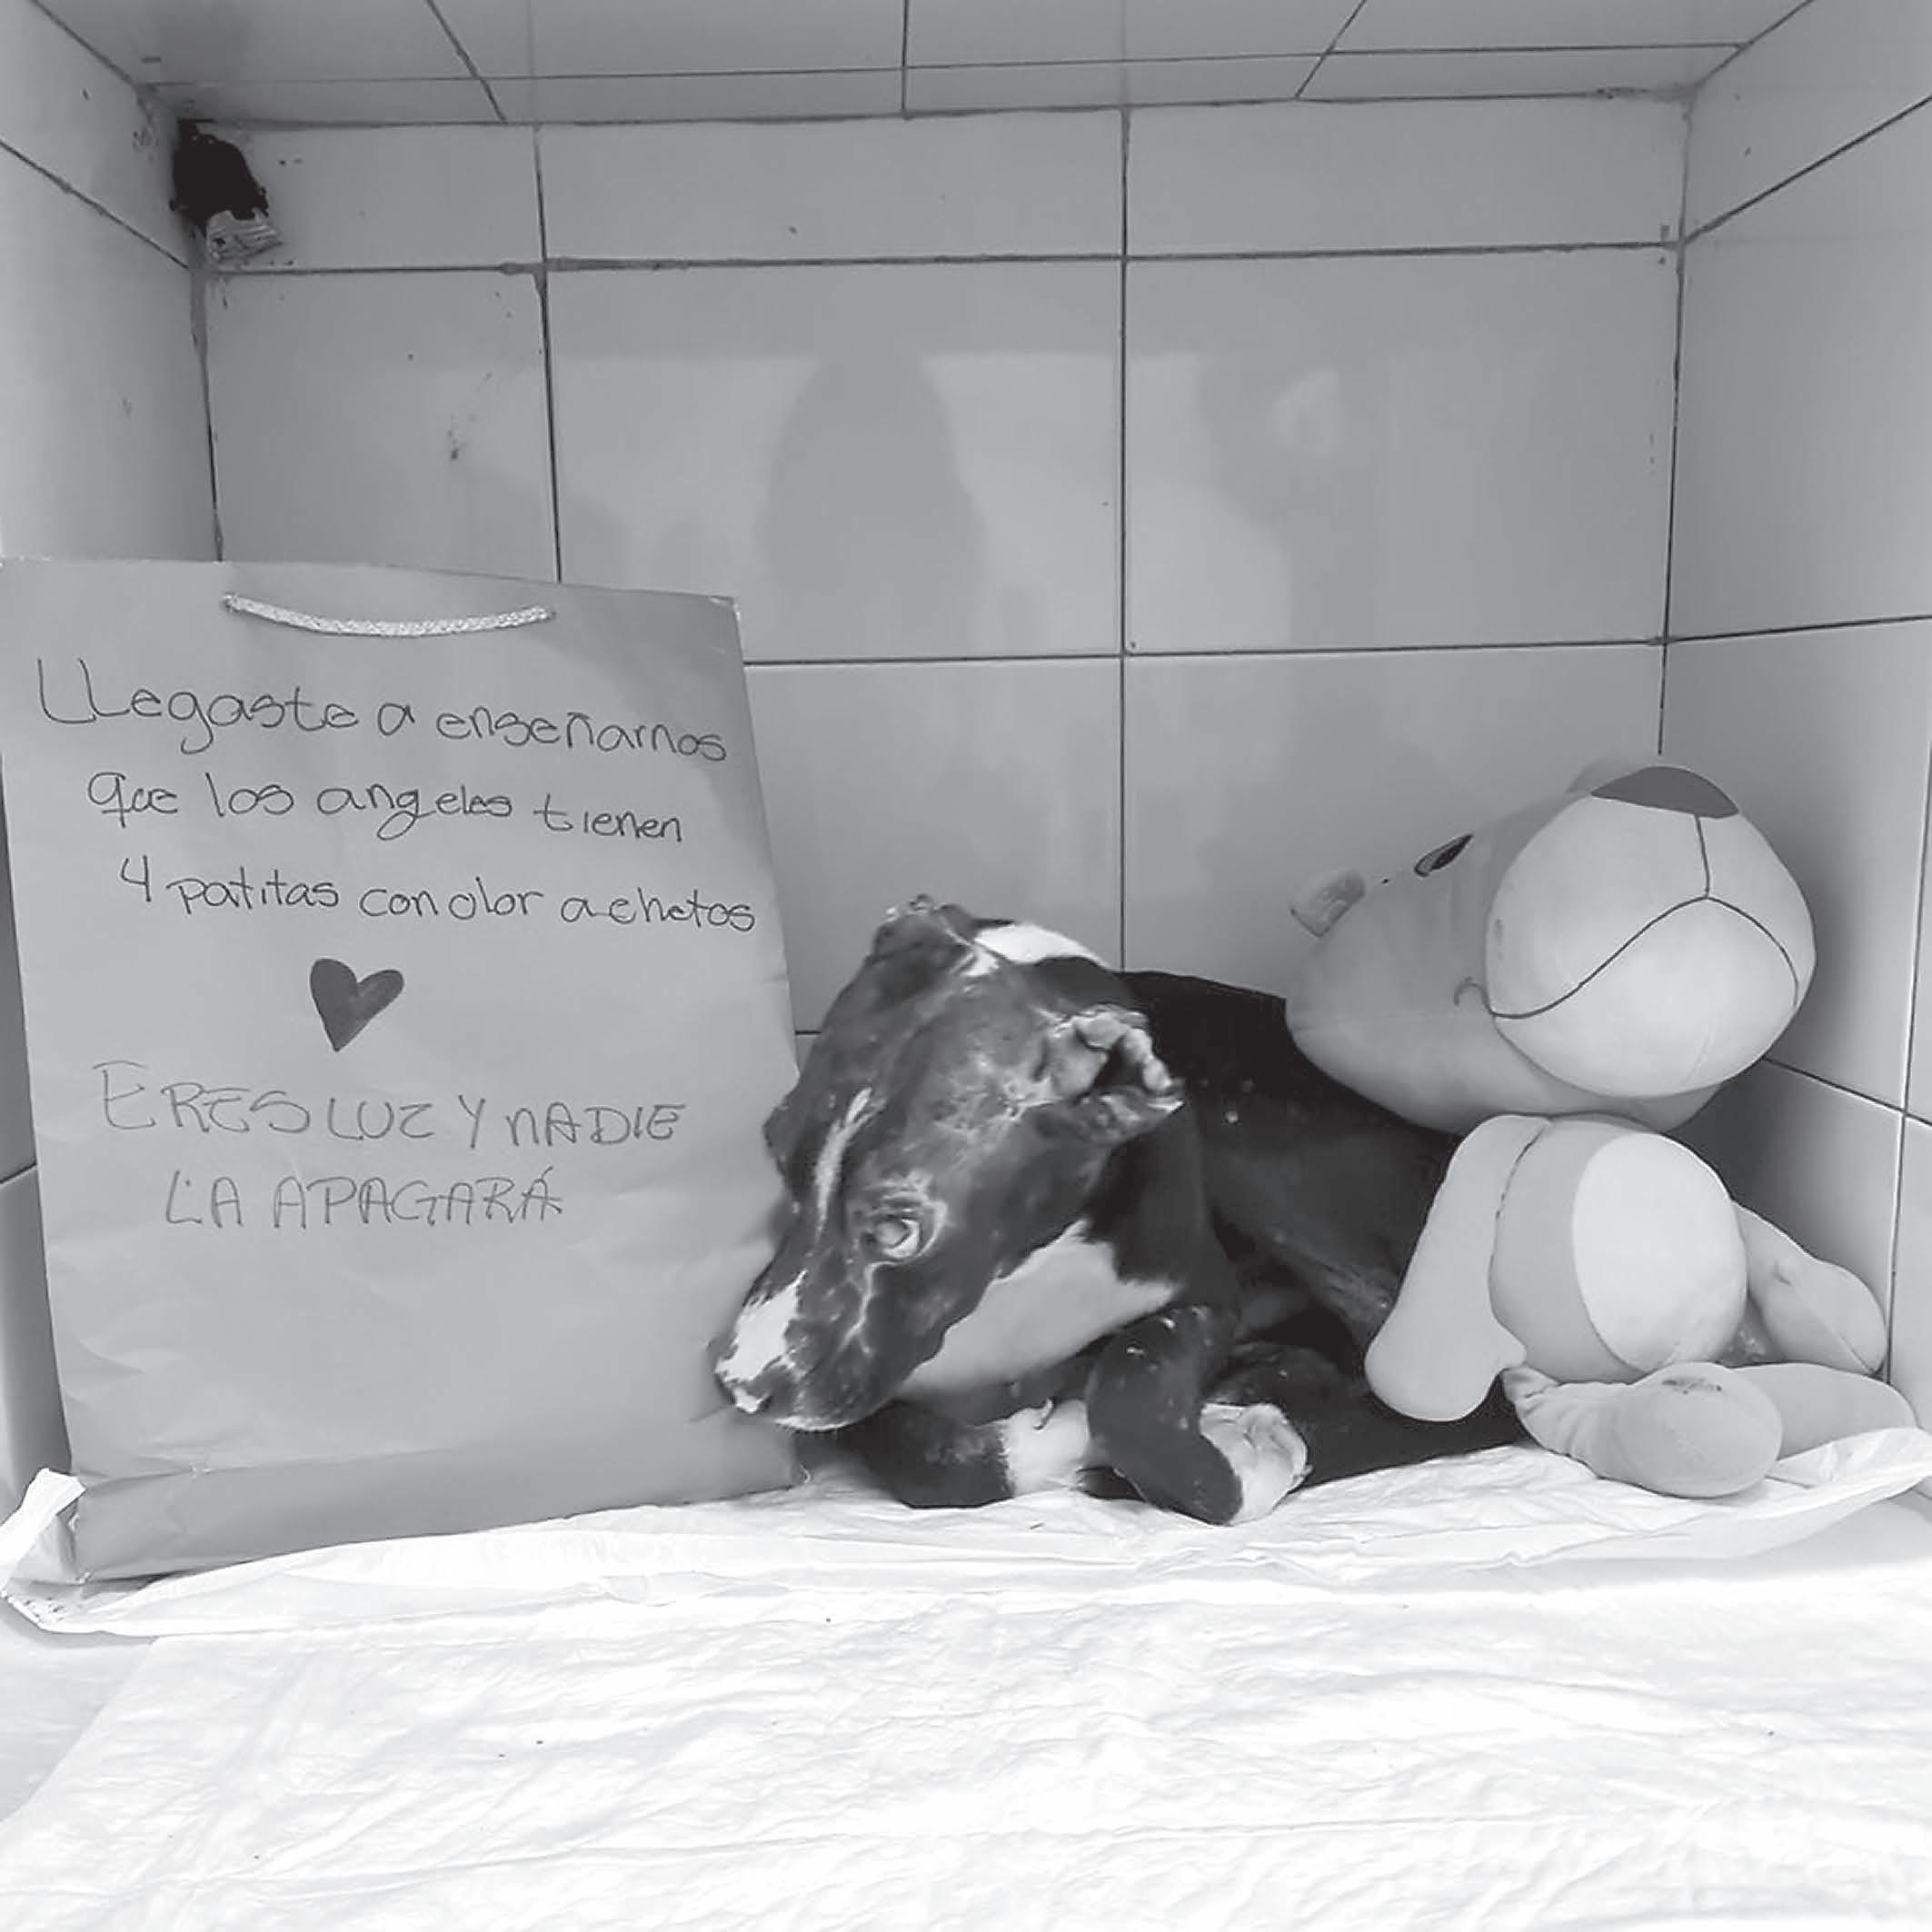 LLegaste a enseñarnos
que los angeles tienen
4 patitas con olor a chetos
ERES LUZ Y nADIE
LA APAGARÁ